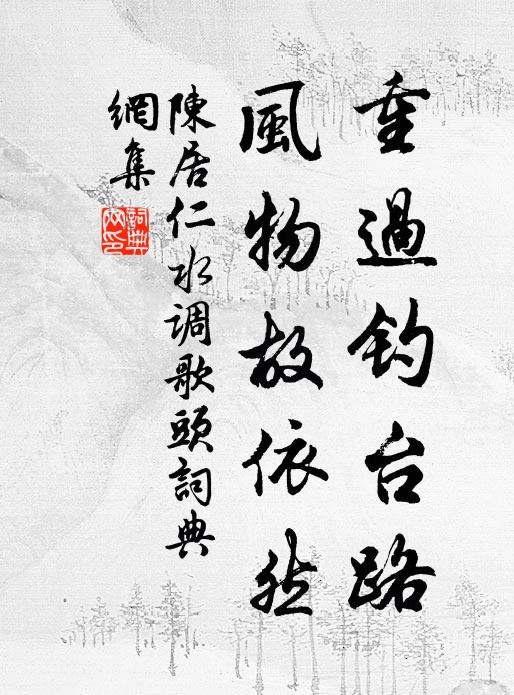 重過釣台路
風物故依然
陳居仁水调歌頭詞典
網集
詞典
网印